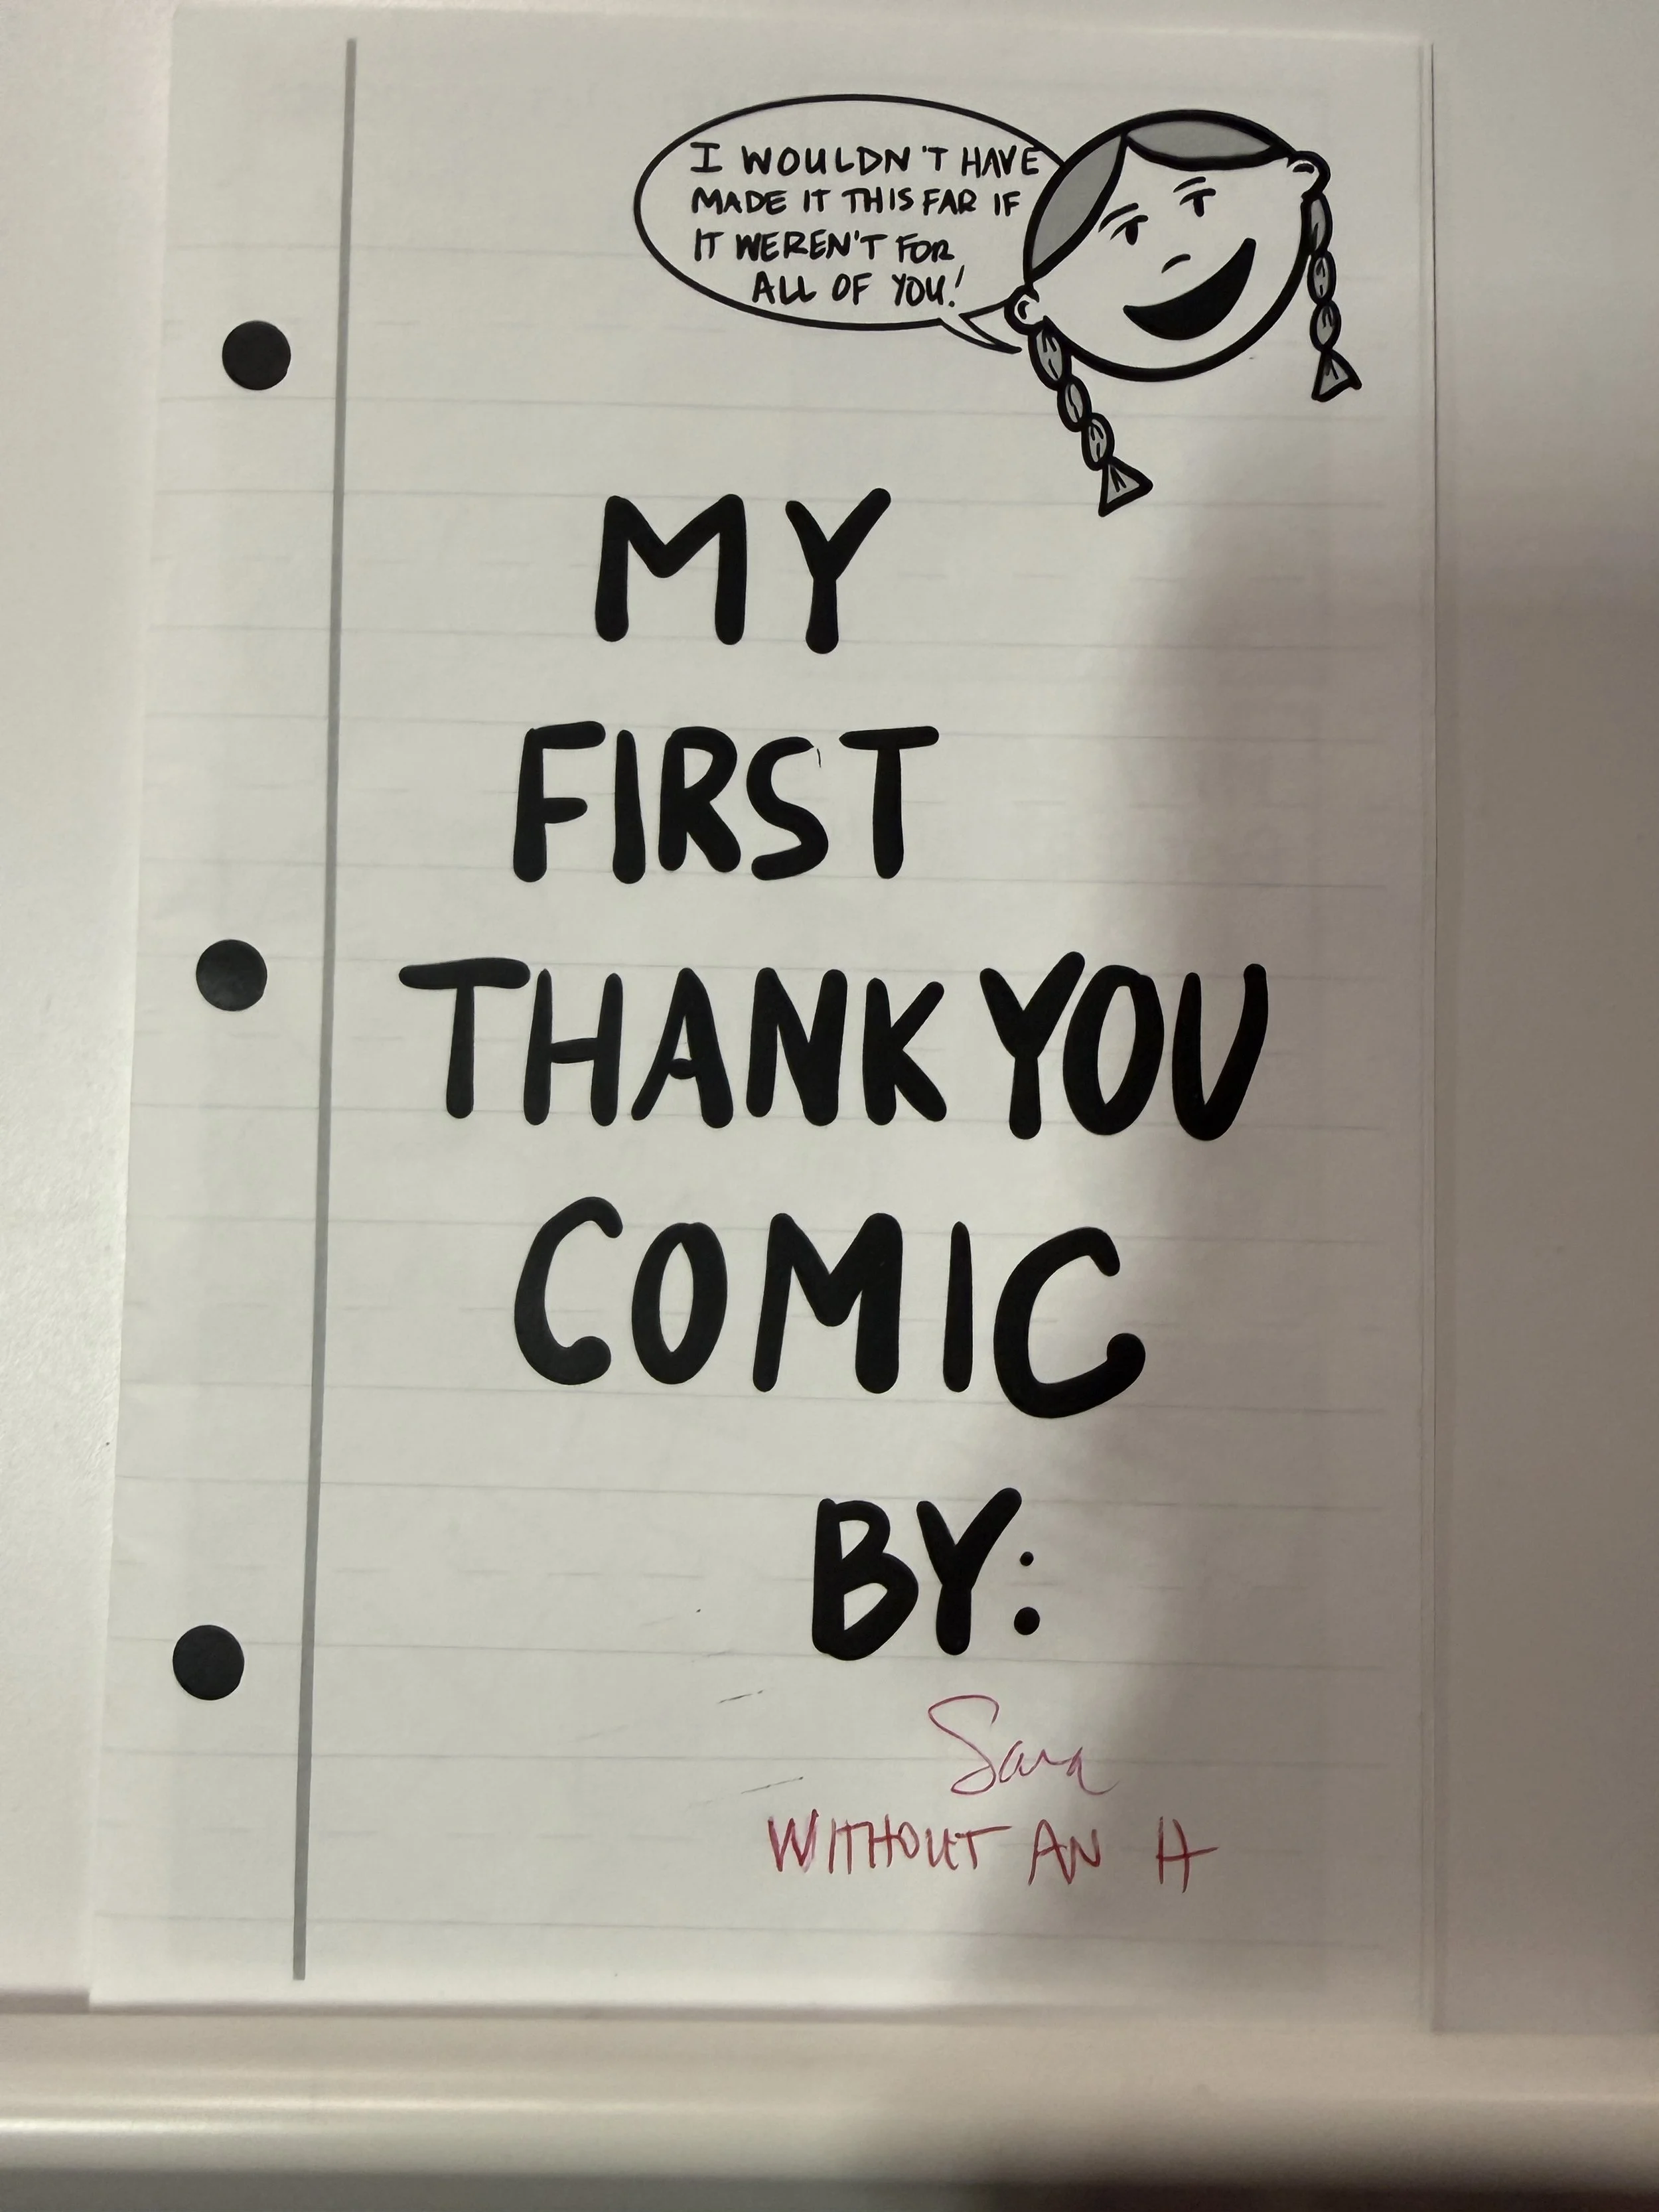 I WOULDN'T HAVE
MADE IT THIS FAR IF
IT WEREN'T FOR
ALL OF YOU!
MY
FIRST
THANK YOU
COMIC
BY:
Sara
WITHOUT AN H